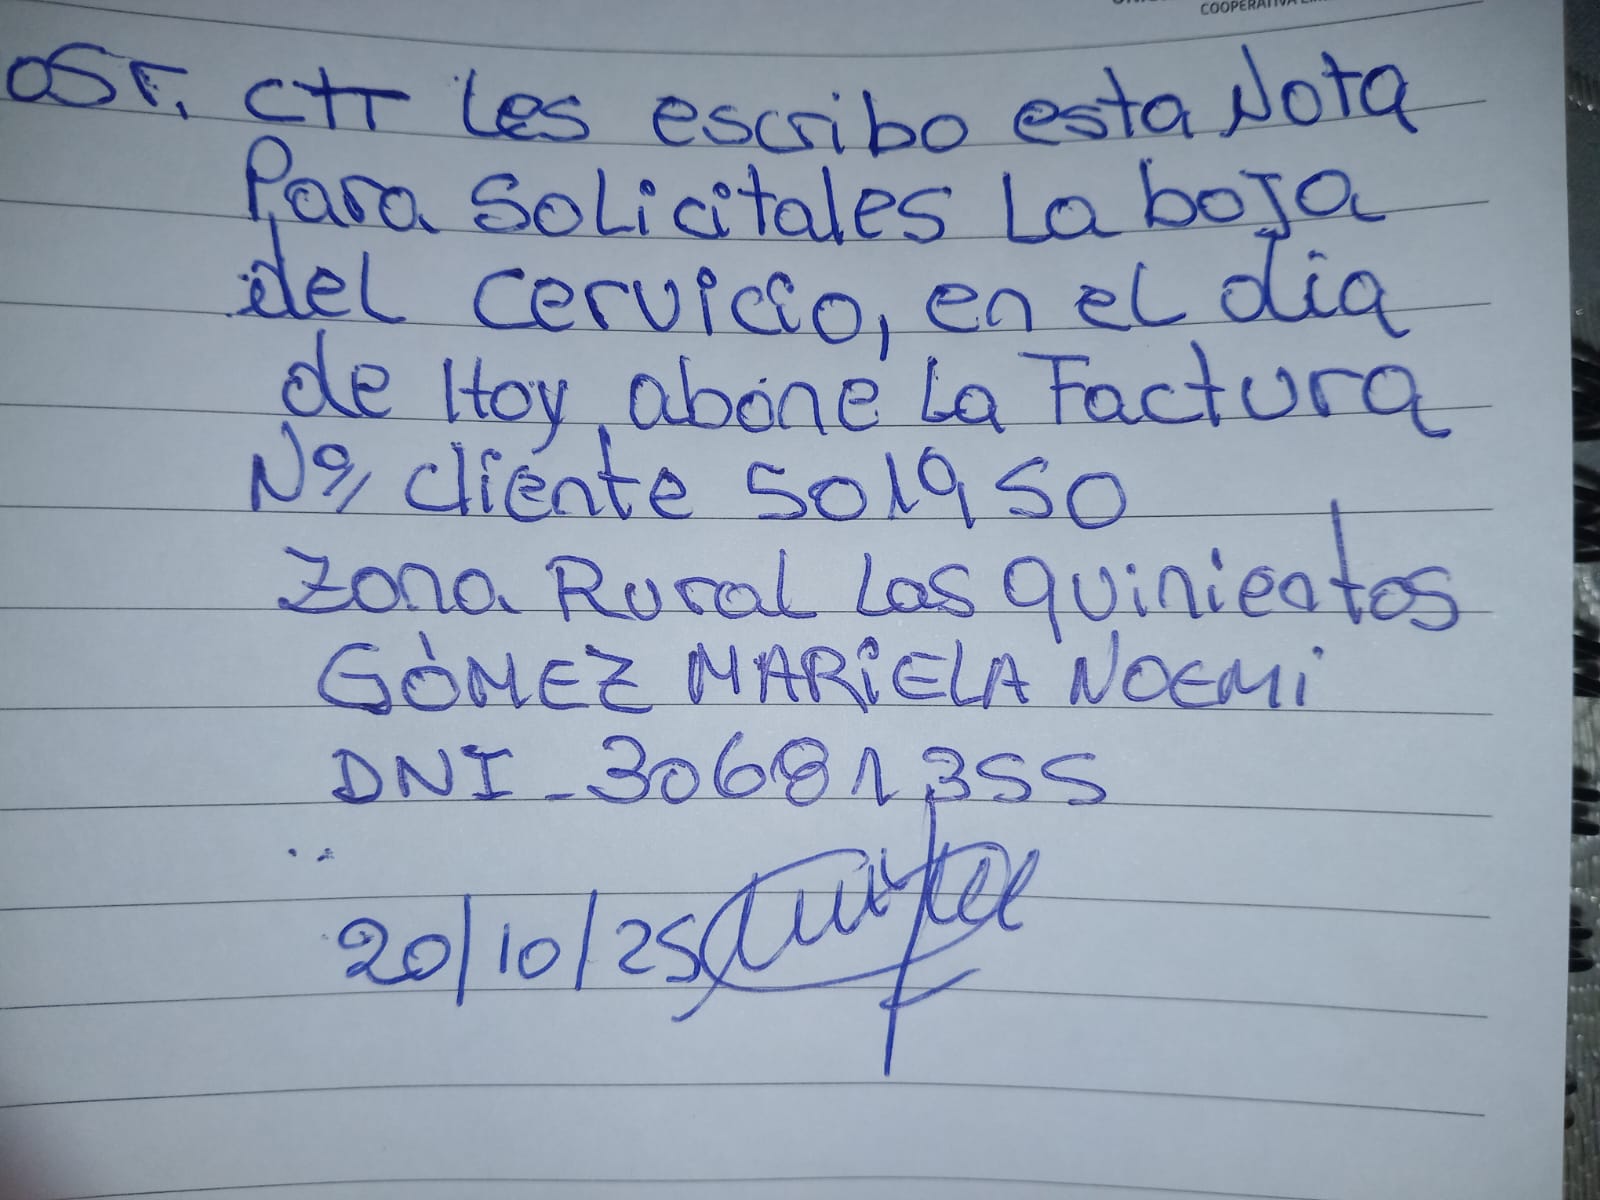 OSF. CTT Les escribo esta Nota
Para Solicitales La baja
del cervicio, en el dia
de Hoy, abóne La Factura
Nº, cliente 501950
Zona Rural Las quinientos
GÓMEZ MARiELA NOEMi
DNI - 30681355
20/10/25